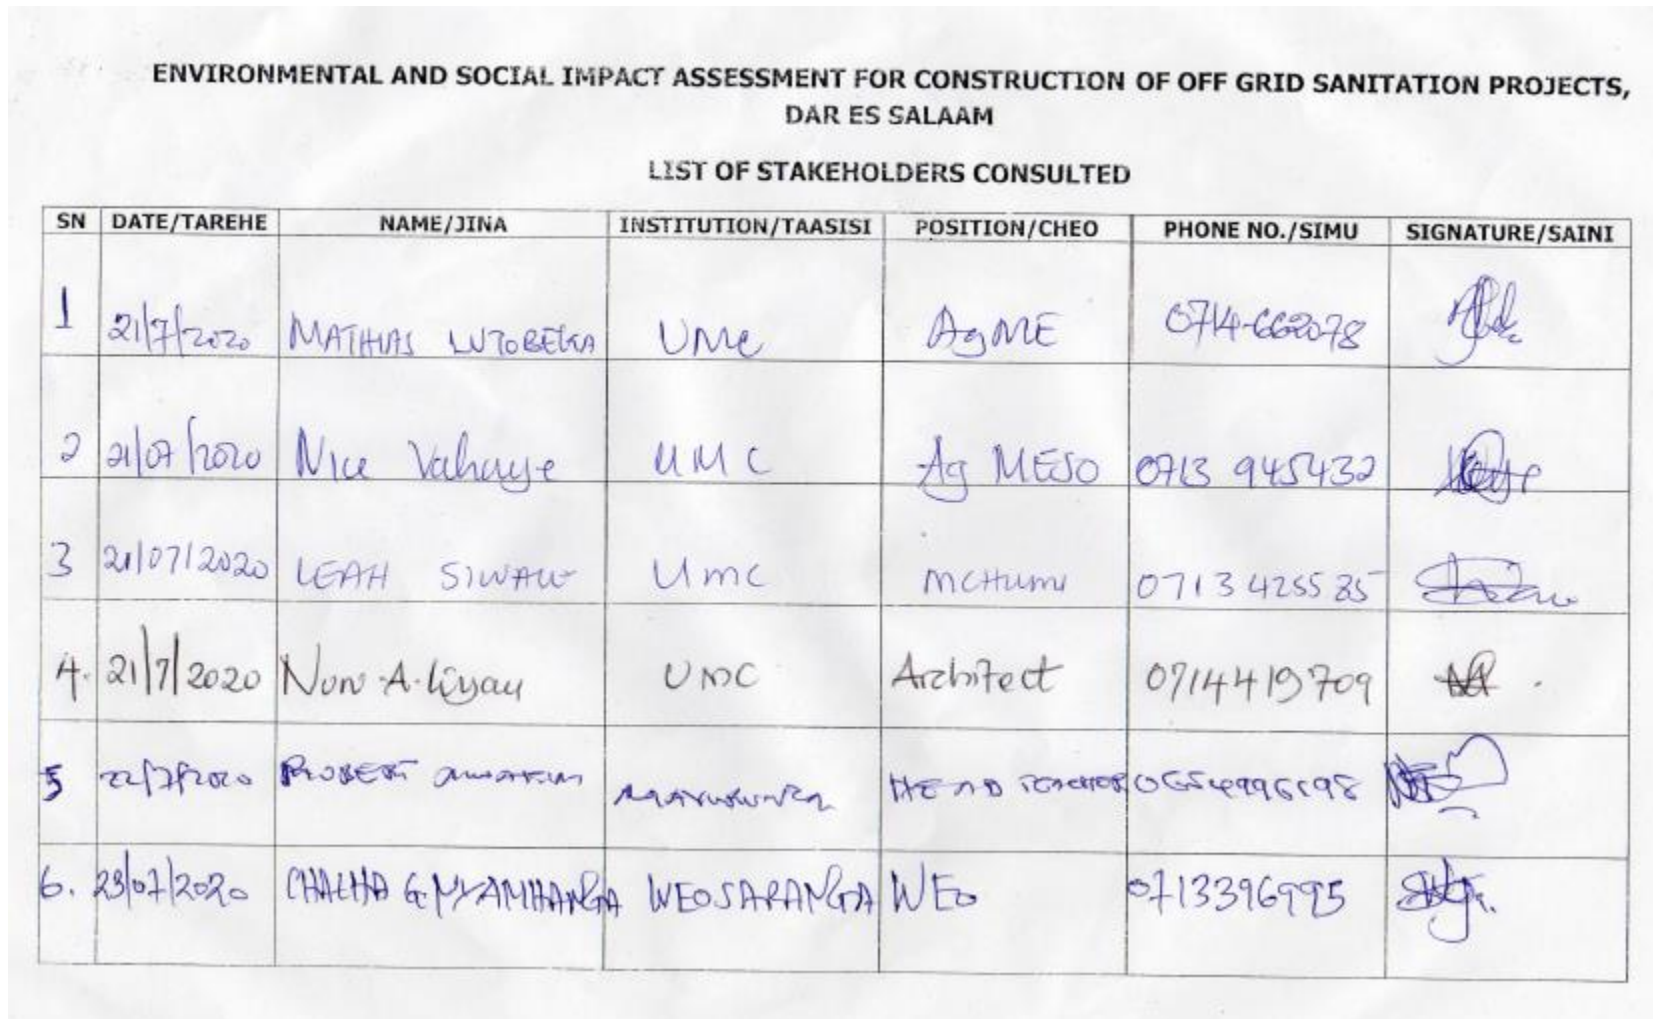 ENVIRONMENTAL AND SOCIAL IMPACT ASSESSMENT FOR CONSTRUCTION OF OFF GRID SANITATION PROJECTS,
DAR ES SALAAM
LIST OF STAKEHOLDERS CONSULTED
SN DATE/TAREHE NAME/JINA INSTITUTION/TAASISI POSITION/CHEO PHONE NO./SIMU SIGNATURE/SAINI
1 21/7/2020 MATHIAS UMC AgME 0714-662078
2 21/07/2020 Nice Vahaye UMC Ag MESO 0713 945432
3 21/07/2020 LEAH UMC MCHUMI 0713 425535
4. 21/7/2020 A. UMC Architect 0714419709
5 22/7/2020 ROBERT HEAD TEACHER
6. 23/07/2020 CHACHA G. NYAMHANGA WEO SARANGA WEO 0713396995